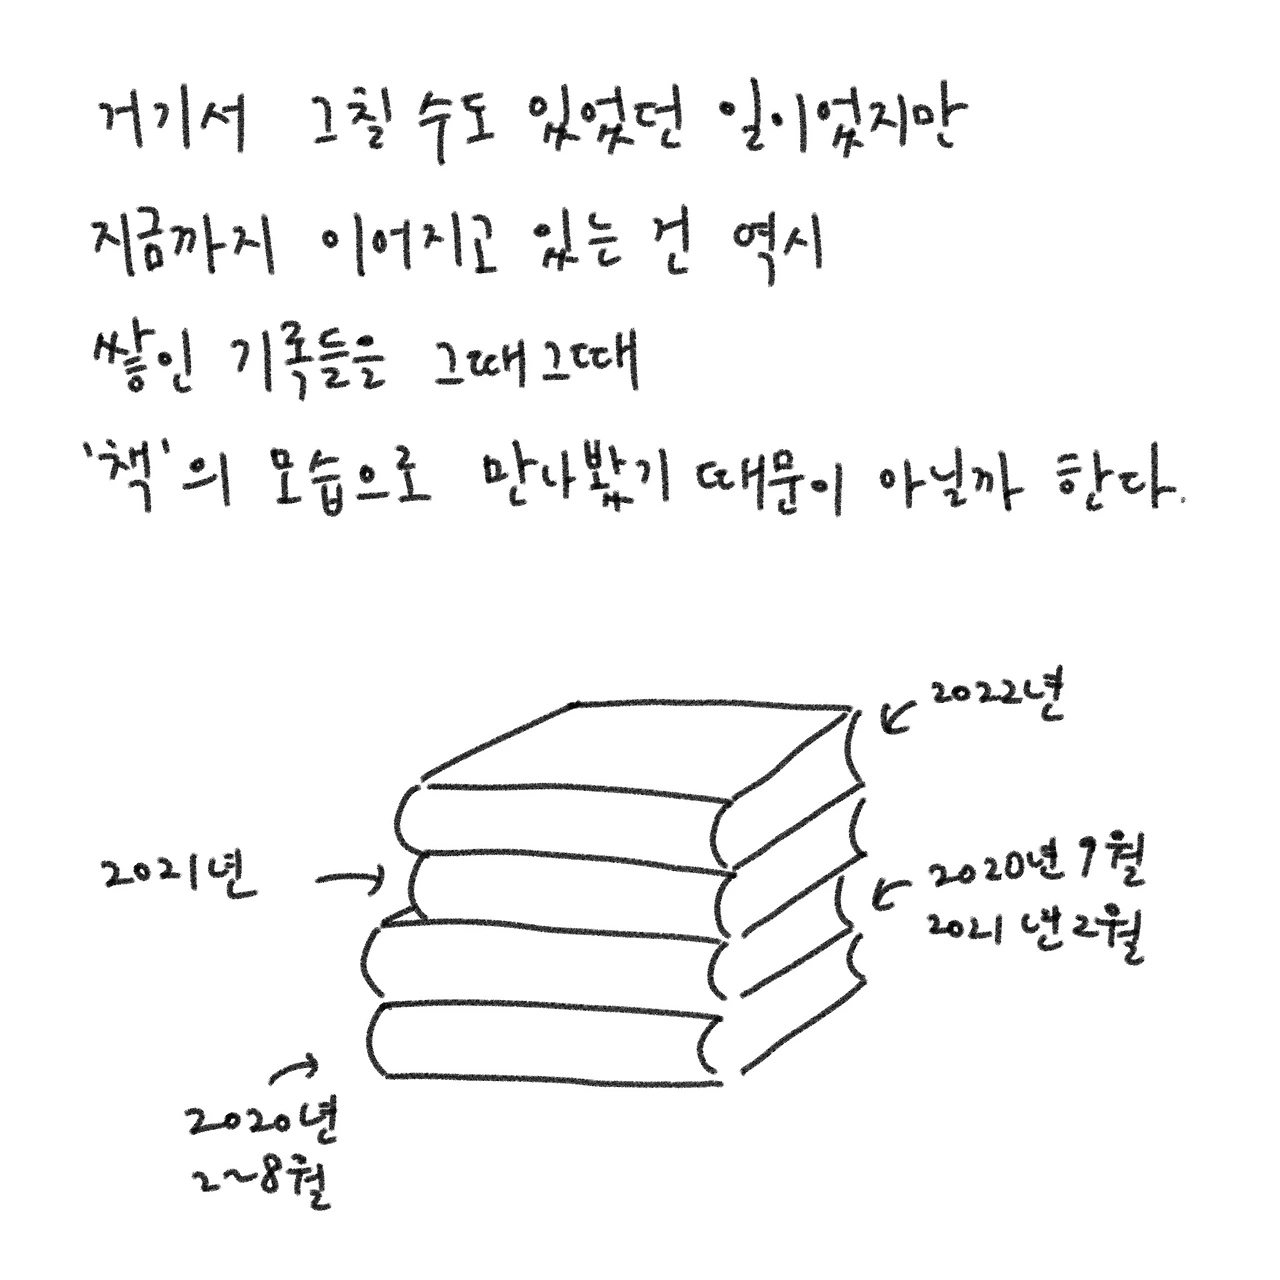 거기서 그칠 수도 있었던 일이었지만
지금까지 이어지고 있는 건 역시
쌓인 기록들을 그때그때
'책'의 모습으로 만나봤기 때문이 아닐까 한다.
2022년
2021년
2020년 9월
2021년 2월
2020년
2~8월